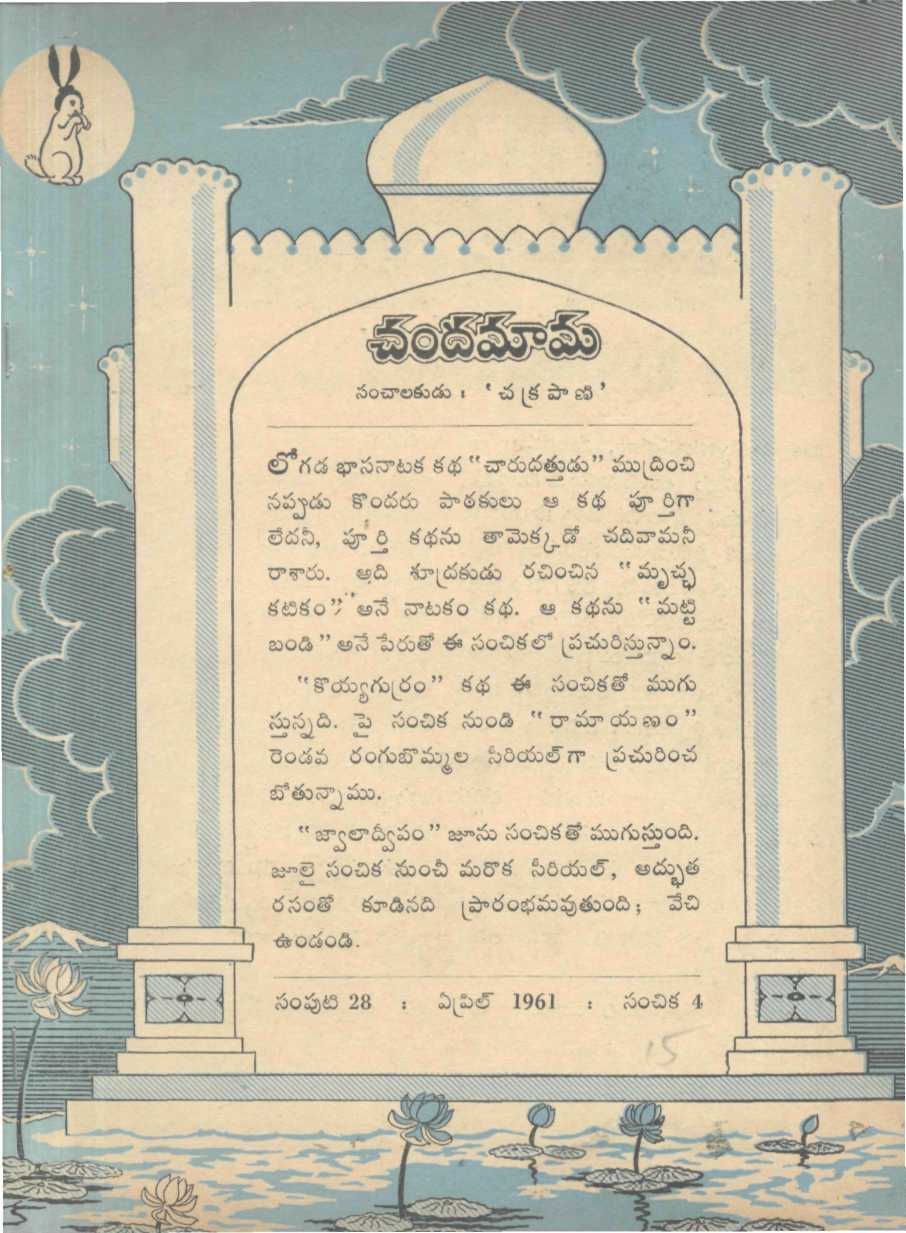 చందమామ
సంచాలకుడు : ' చక్రపాణి '
లోగడ భాసనాటక కథ "చారుదత్తుడు" ముద్రించి
నప్పుడు కొందరు పాఠకులు ఆ కథ పూర్తిగా
లేదనీ, పూర్తి కథను తామెక్కడో చదివామనీ
రాశారు. అది శూద్రకుడు రచించిన "మృచ్ఛ
కటికం" అనే నాటకం కథ. ఆ కథను "మట్టి
బండి" అనే పేరుతో ఈ సంచికలో ప్రచురిస్తున్నాం.
"కొయ్యగుర్రం" కథ ఈ సంచికతో ముగు
స్తున్నది. పై సంచిక నుండి "రామాయణం"
రెండవ రంగుబొమ్మల సీరియల్‌గా ప్రచురించ
బోతున్నాము.
"జ్వాలాద్వీపం" జూను సంచికతో ముగుస్తుంది.
జూలై సంచిక నుంచీ మరొక సీరియల్, అద్భుత
రసంతో కూడినది ప్రారంభమవుతుంది; వేచి
ఉండండి.
సంపుటి 28 : ఏప్రిల్ 1961 : సంచిక 4
15